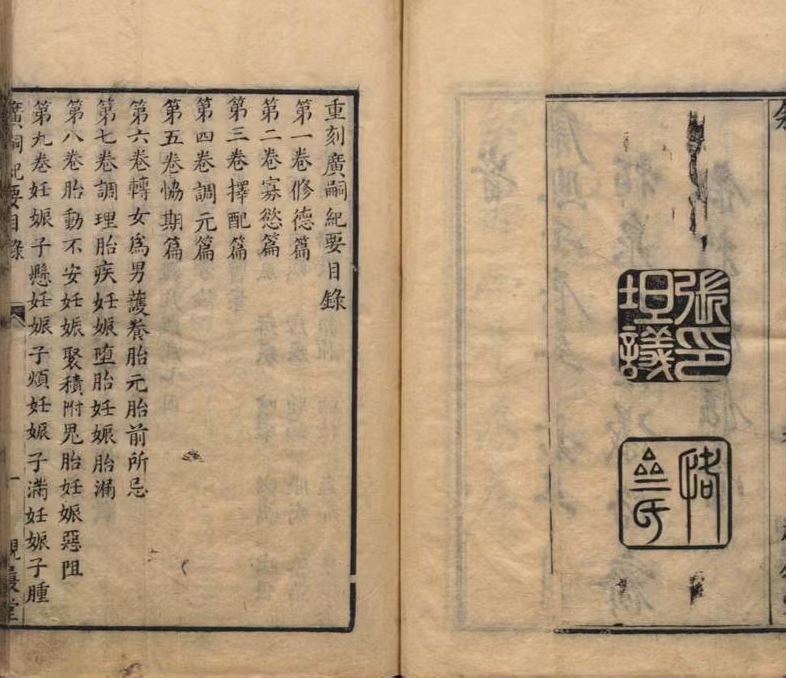 張印
坦議
重刻廣嗣紀要目錄
第一卷修德篇
第二卷寡慾篇
第三卷擇配篇
第四卷調元篇
第五卷恊期篇
第六卷轉女爲男護養胎元胎前所忌
第七卷調理胎疾妊娠墮胎妊娠胎漏
第八卷胎動不安妊娠聚積附鬼胎妊娠惡阻
第九卷妊娠子懸妊娠子煩妊娠子滿妊娠子腫
廣嗣紀要目錄 一